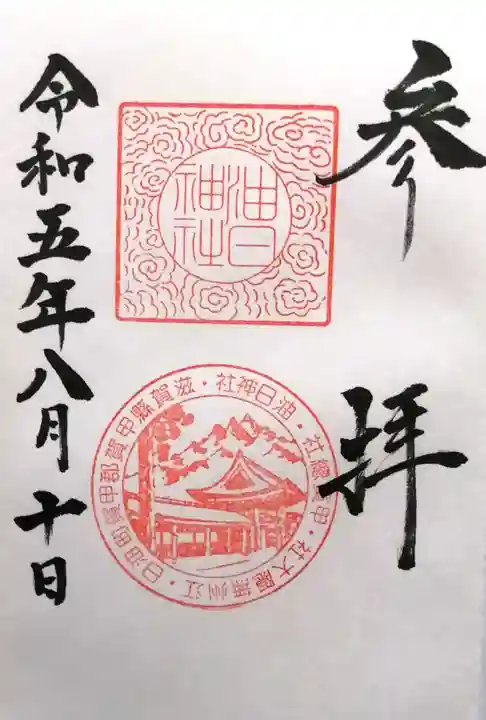 参拝
油日
神社
油日神社・滋賀縣甲賀郡甲賀町油日・江州
社大
令和五年八月十日